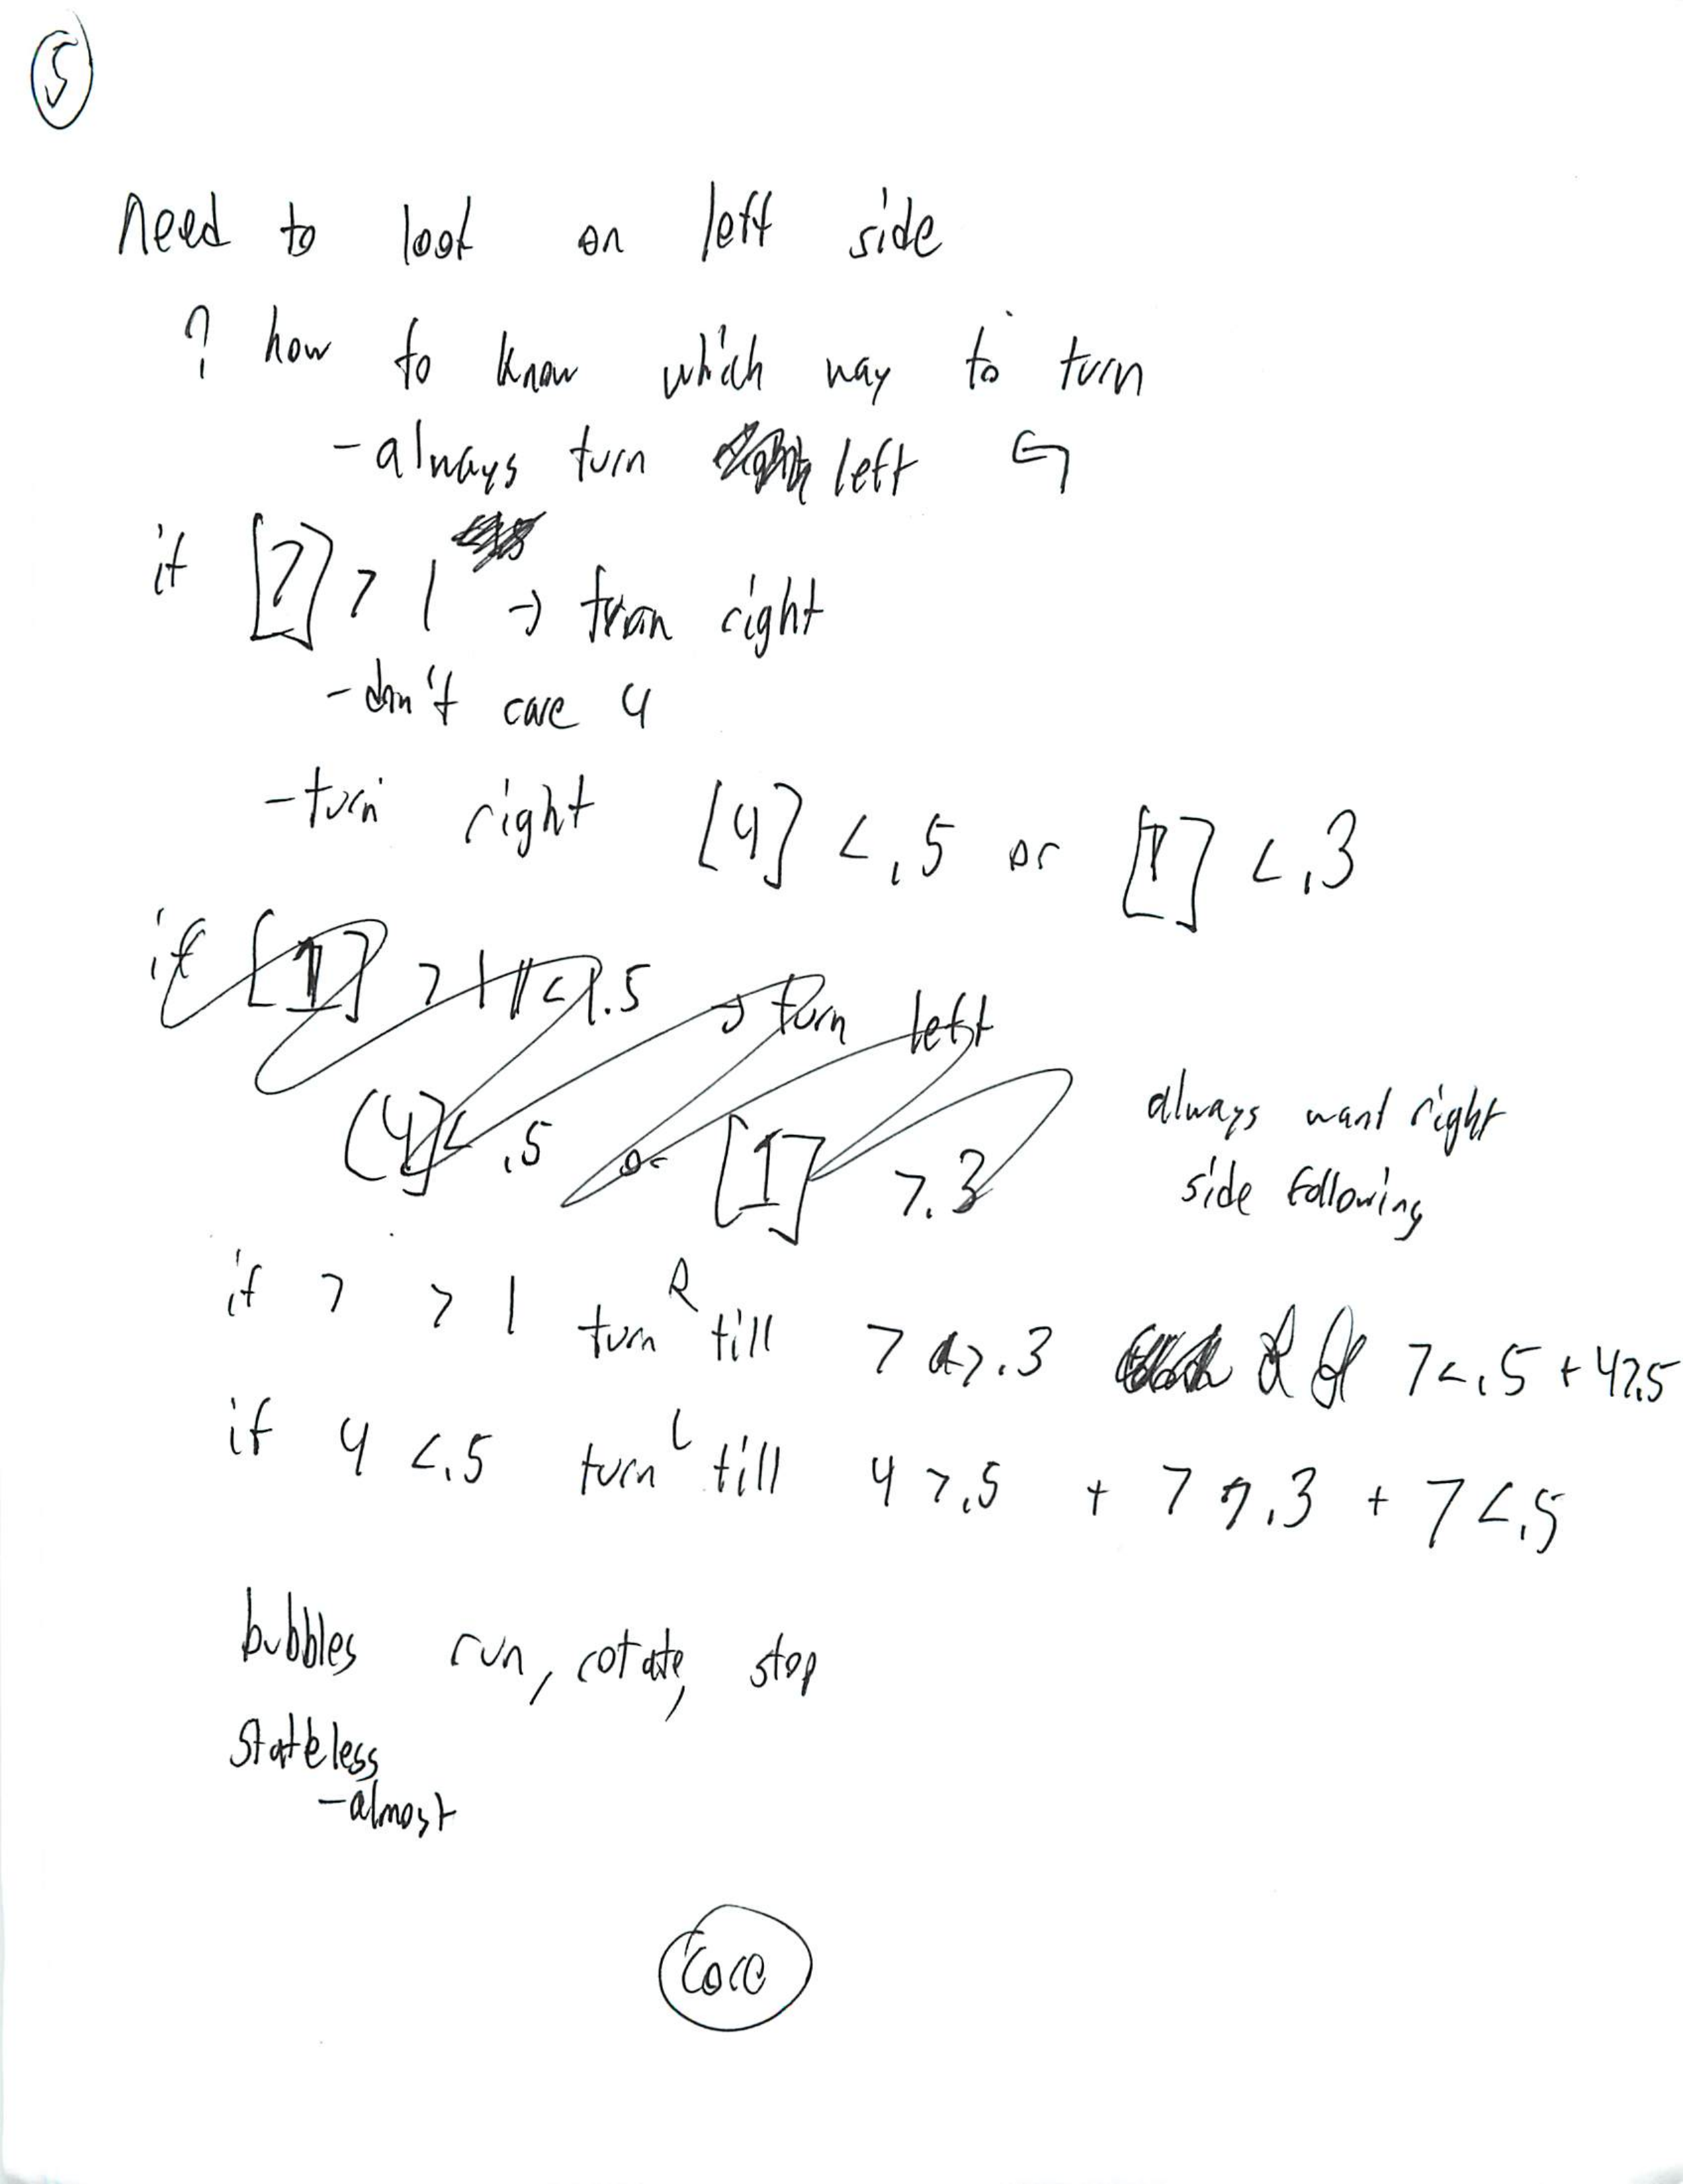 5
need to look on left side
? how to know which way to turn
- always turn left
if [7] > 1 → turn right
- don't care 4
- turn right [4] < .5 or [7] < .3
if [1] > 1 || < 1.5 → turn left
[4] < .5 or [1] > .3
always want right
side following
if 7 > 1 turn R till 7 > .3 7 < .5 + 4 > .5
if 4 < .5 turn L till 4 > .5 + 7 > .3 + 7 < .5
bubbles run, rotate, stop
stateless
- almost